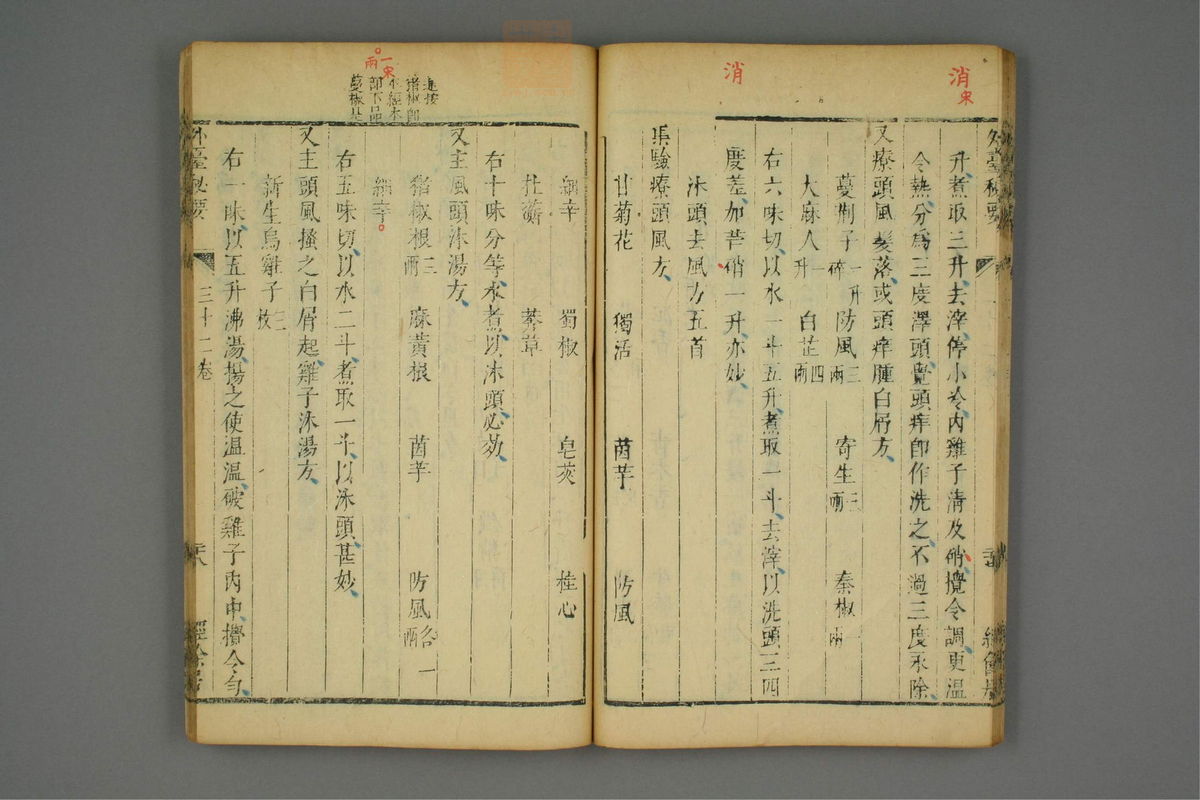 消
消
宋
外臺秘要
升煮取三升去滓停小冷内雞子清及硝攪令調更温
令熱分爲三度澤頭覺頭痒卽作洗之不過三度永除
又療頭風髮落或頭痒腫白屑方
蔓荆子一升碎 防風三兩 寄生三兩 秦椒一兩
大麻人一升 白芷四兩
右六味切以水一斗五升煮取一斗去滓以洗頭三四
度差加芒硝一升亦妙
沐頭去風方五首
集驗療頭風方
甘菊花 獨活 茵芋 防風
細辛 蜀椒 皂莢 桂心
杜蘅 莽草
右十味分等水煮以沐頭必効
又主風頭沐湯方
猪椒根三兩 麻黄根 茵芋 防風各一兩
細辛
右五味切以水二斗煮取一斗以沐頭甚妙
又主頭風搔之白屑起雞子沐湯方
新生烏雞子三枚
右一味以五升沸湯揚之使温温破雞子内中攪令匀
外臺秘要
三十二卷
經餘居
一兩
宋